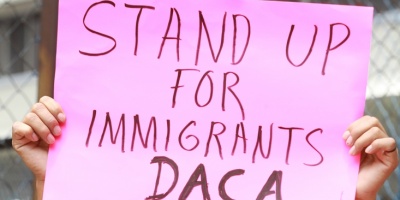 STAND UP
FOR
IMMIGRANTS
DACA